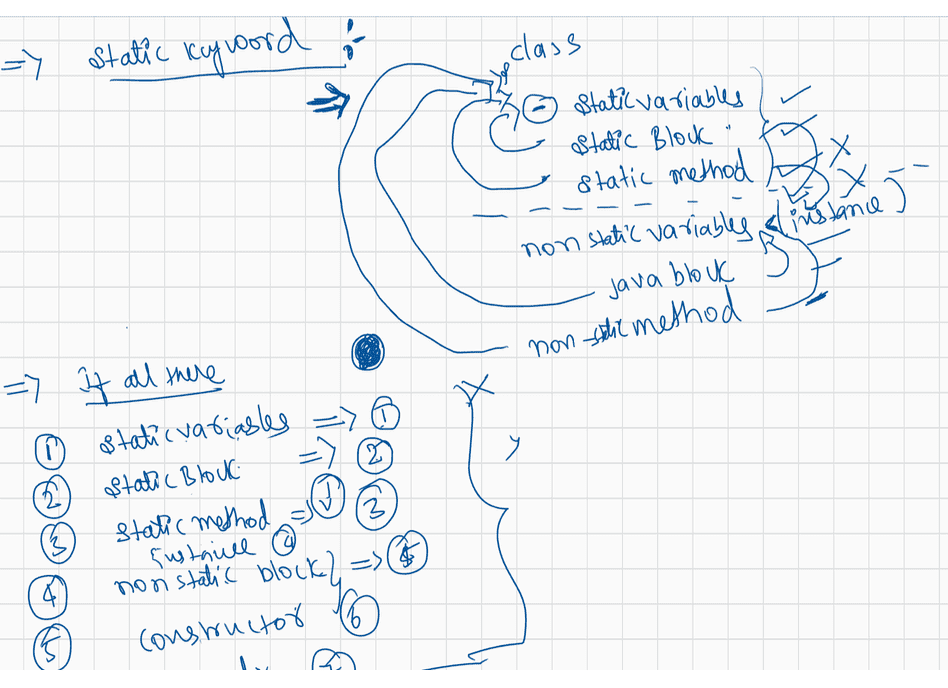 => static keyword :
class
static variables
static Block
static method
non static variables (instance)
java block
non-static method
=> if all there
① static variables => ①
② static Block => ②
③ static method => ③
instance ④
④ non static block => ⑤
⑤ constructor ⑥